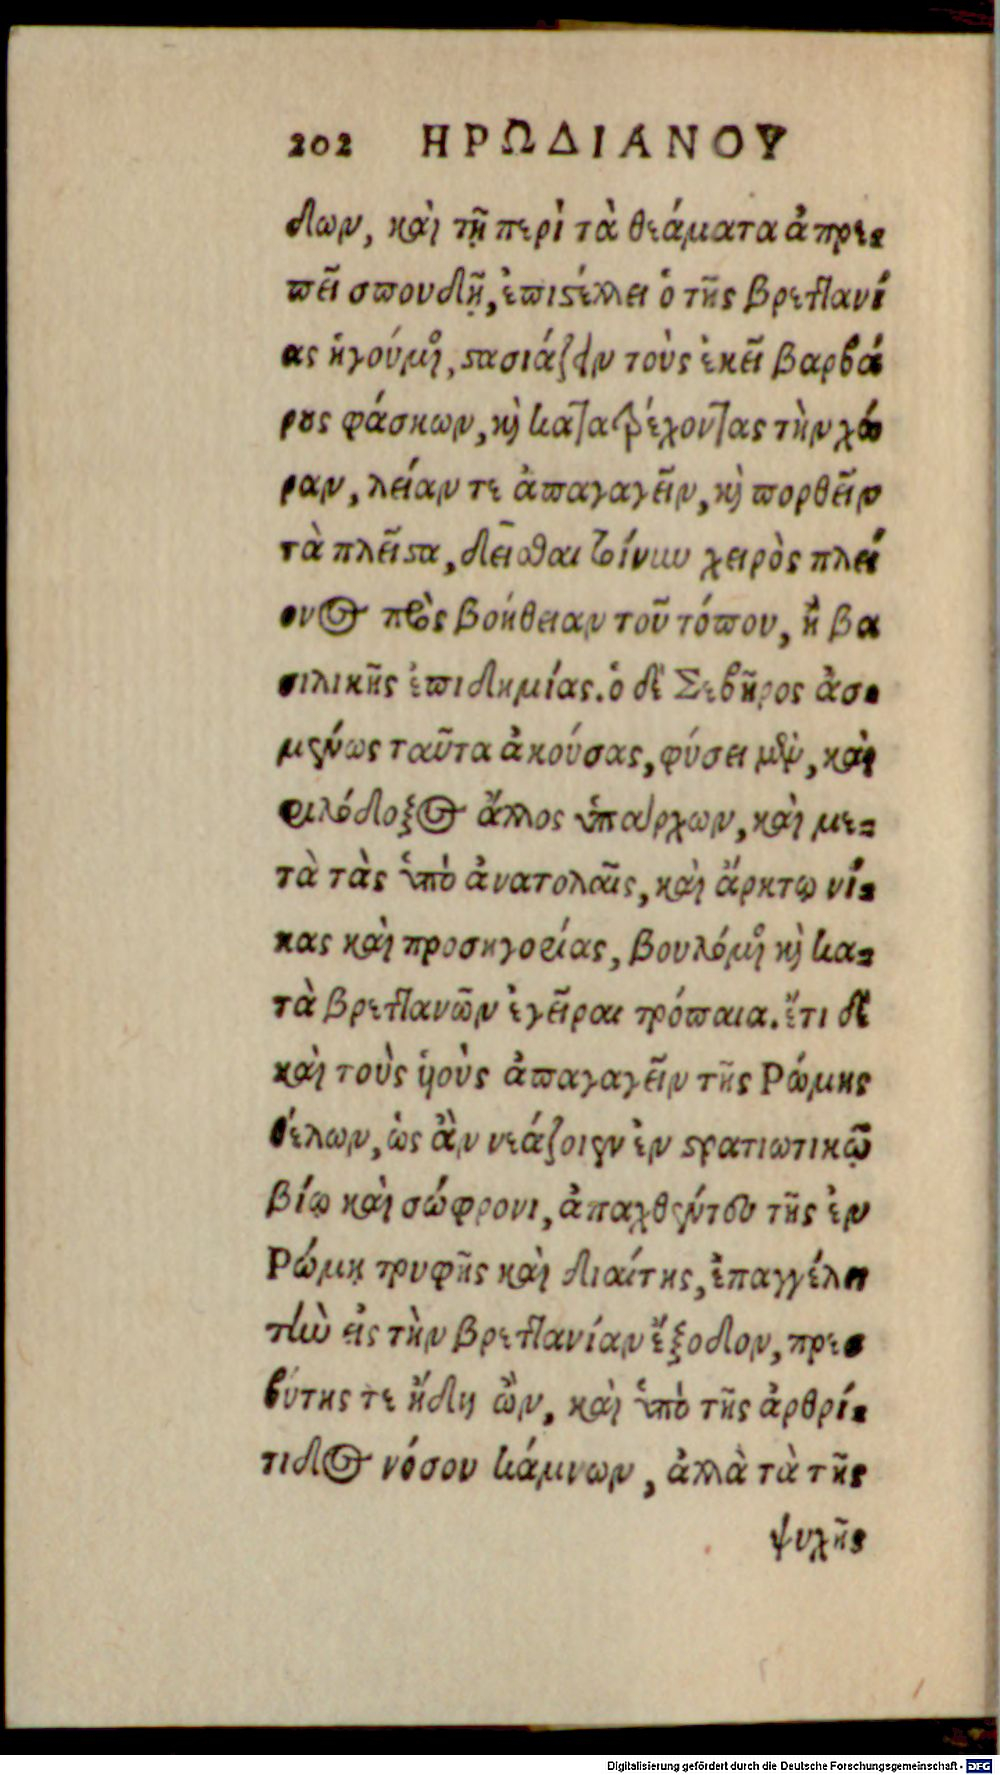 202 ΗΡΩΔΙΑΝΟΥ
δων, καὶ τῇ περὶ τὰ θεάματα ἀπρε-
πεῖ σπουδῇ, ἐπιστέλλει ὁ τῆς βρεττανί
ας ἡγούμενος, στασιάζειν τοὺς ἐκεῖ βαρβά
ρους φάσκων, καὶ κατατρέχοντας τὴν χώ
ραν, λείαν τε ἀπαγαγεῖν, καὶ πορθεῖν
τὰ πλεῖστα, δεῖσθαι τοίνυν χειρὸς πλεί
ονος πρὸς βοήθειαν τοῦ τόπου, ἢ βα
σιλικῆς ἐπιδημίας. ὁ δὲ Σεβῆρος ἀσ-
μένως ταῦτα ἀκούσας, φύσει μὲν, καὶ
φιλόδοξος ἄλλος ὑπάρχων, καὶ με-
τὰ τὰς ὑπὸ ἀνατολαῖς, καὶ ἄρκτῳ νί-
κας καὶ προσηγορίας, βουλόμενος καὶ κα-
τὰ βρεττανῶν ἐγεῖραι τρόπαια. ἔτι δὲ
καὶ τοὺς υἱοὺς ἀπαγαγεῖν τῆς Ρώμης
θέλων, ὡς ἂν νεάζοιεν ἐν στρατιωτικῷ
βίῳ καὶ σώφρονι, ἀπαχθέντες τῆς ἐν
Ρώμῃ τρυφῆς καὶ διαίτης, ἐπαγγέλει
τὴν εἰς τὴν βρεττανίαν ἔξοδον, πρεσ
βύτης τε ἤδη ὢν, καὶ ὑπὸ τῆς ἀρθρί-
τιδος νόσου κάμνων, ἀλλὰ τὰ τῆς
ψυχῆς
Digitalisierung gefördert durch die Deutsche Forschungsgemeinschaft - DFG